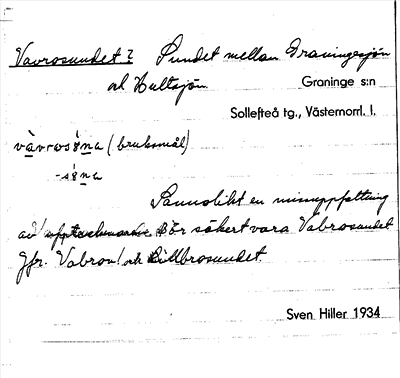 Vavrosundet? Sundet mellan Graningesjön
och Hultsjön
Graninge s:n
Sollefteå tg., Västernorrl. l.
(bruksmål)
Sannolikt en missuppfattning
av Bör säkert vara Vabrosundet
Jfr. Vabron! och Lillbrosundet.
Sven Hiller 1934